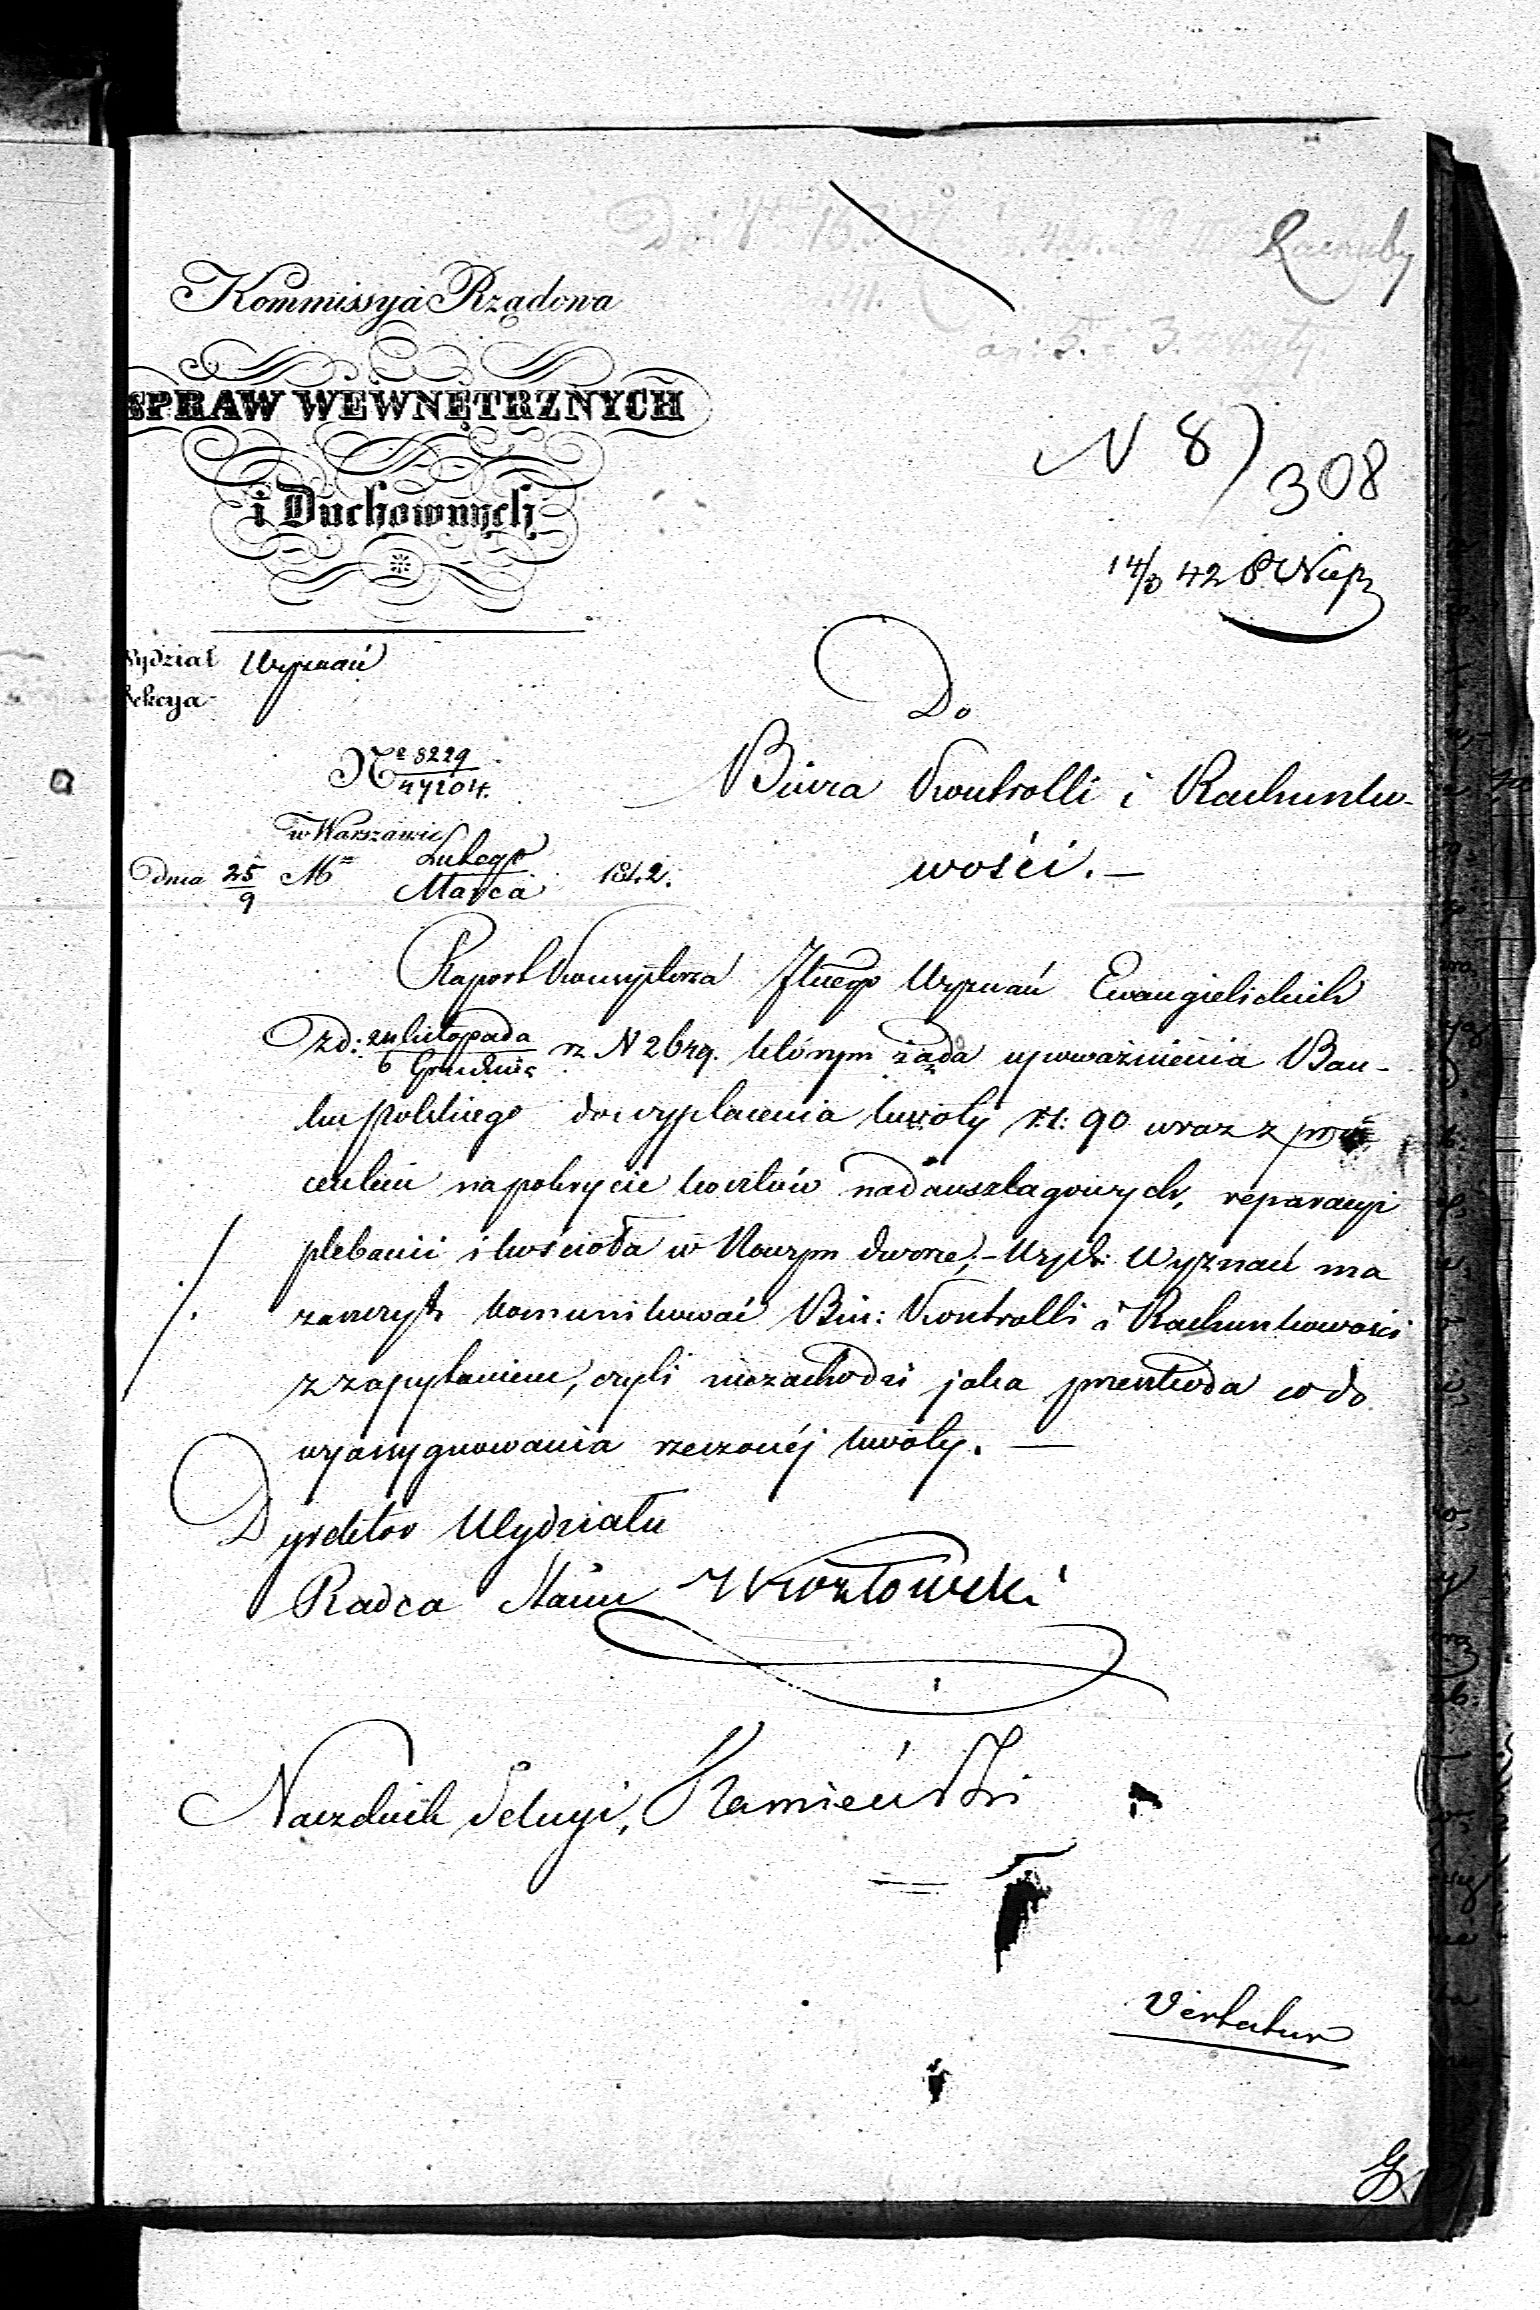 Rachuby
Kommissya Rządowa
SPRAW WEWNĘTRZNYCH
i Duchownych
N 8)
308
14/3 42
Wydział Wyznań
Sekcya
Nº 8229
47204.
w Warszawie
Dnia 25/9 Mca Lutego/Marca 1842.
Do
Biura Kontrolli i Rachunko-
wości. —
Raport Konsystorza Jlnego Wyznań Ewangielickich
z d: 24 Listopada/6 Grudnia rz N 2649. którym żąda upoważnienia Ban-
ku Polskiego do wypłacenia kwoty rs: 90 wraz z pro
centem na pokrycie kosztów nadanszlagowych, reparacyi
plebanii i kościoła w Nowym dworze; – Wydz: Wyznań ma
zaszczyt komunikować Biu: Kontrolli i Rachunkowości
z zapytaniem, czyli niezachodzi jaka przeszkoda co do
wyassygnowania rzeczonéj kwoty. —
Dyrektor Wydziału
Radca Stanu Kozłowski
Naczelnik Sekcyi, Kamieński
Vertatur